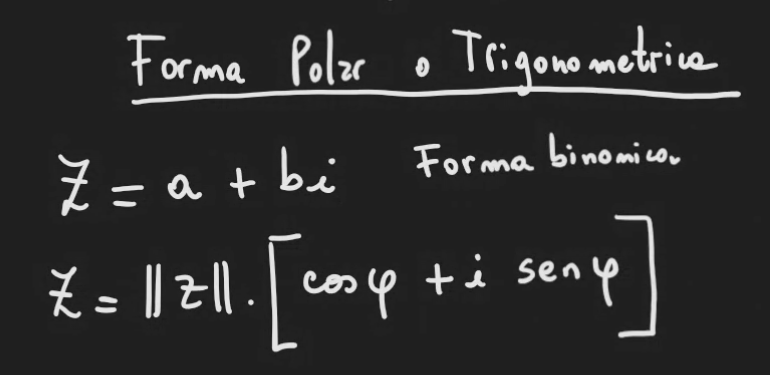 Forma Polar o Trigonometrica
z = a + bi Forma binomica.
z = ||z|| . [cos φ + i sen φ]